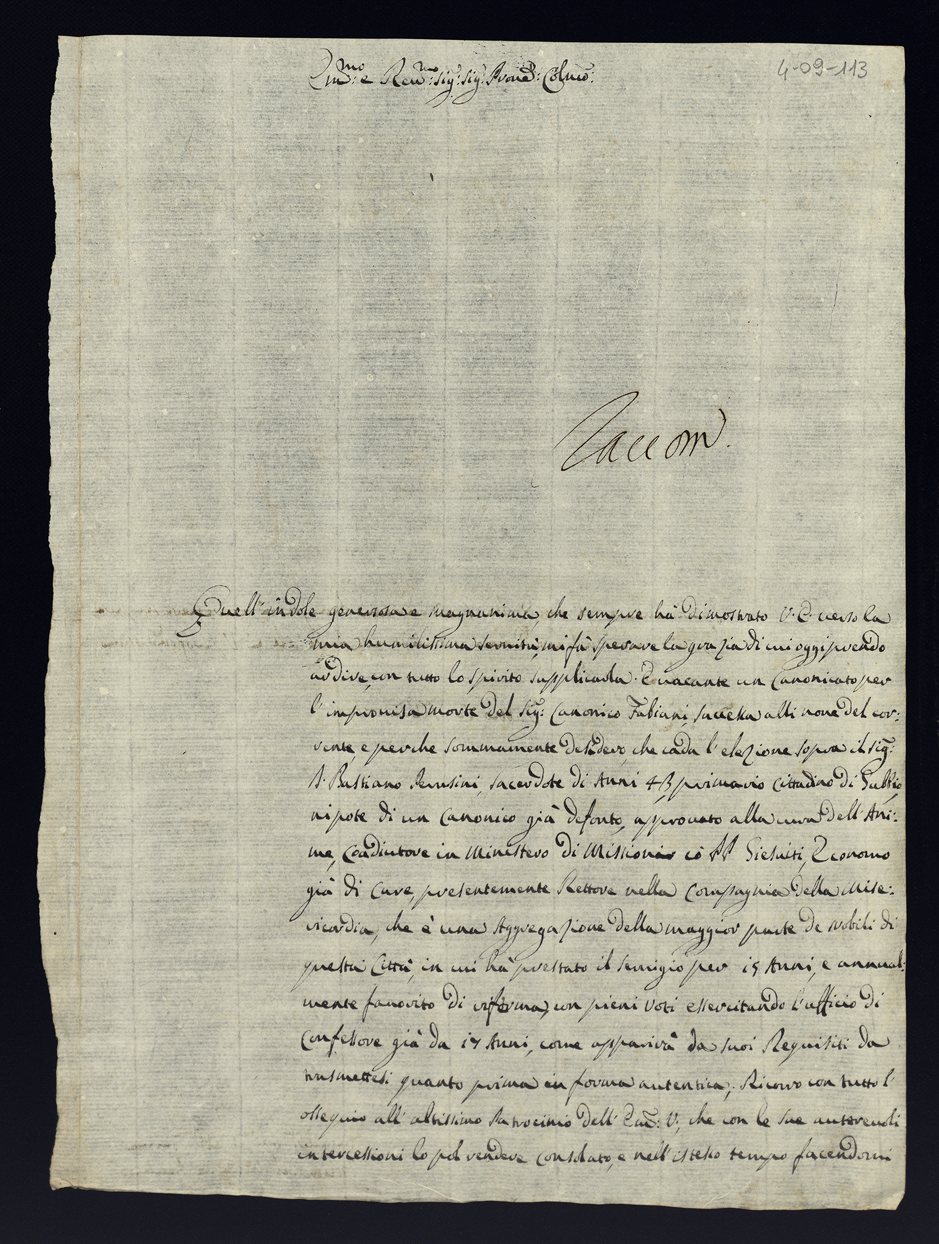 Em̃:mo e Reu:mo Sig: Sig: Prone: Colmo:
4-09-113
Quell' indole generosa e magnanima, che sempre hà dimostrato V. E. verso la
mia humilissima servitù, mi fà sperare la grazia di cui oggi prendo
ardire, con tutto lo spirito supplicarla. È vacante un Canonicato per
l'improuisa morte del Sig: Canonico Fabiani, successa alli noue del cor:
rente, e perche sommamente desidero che cada l'elezione sopra il sig:
D. Bastiano Perusini, sacerdote di Anni 43, primario Cittadino di Gubbio,
nipote di un Canonico già defonto, approuato alla cura dell'Ani:
me, Coadiutore in Ministero di Missionar cõ PP Giesuiti, Economo
già di Cure, presentemente Rettore nella Compagnia della Mise:
ricordia, che è una Aggregazione della maggior parte de Nobili di
questa Città, in cui hà prestato il seruigio per 15 Anni, e annual:
mente fauorito di riforma, con pieni Voti essercitando l'ufficio di
Confessore già da 17 Anni, come apparirà da suoi Requisiti da
trasmettesi quanto prima in forma autentica; Ricorro con tutto l'
ossequio all'altissimo Patrocinio dell'Em̃: V:, che con le sue autoreuoli
intercessioni lo pol rendere consolato, e nell'istesso tempo facendomi